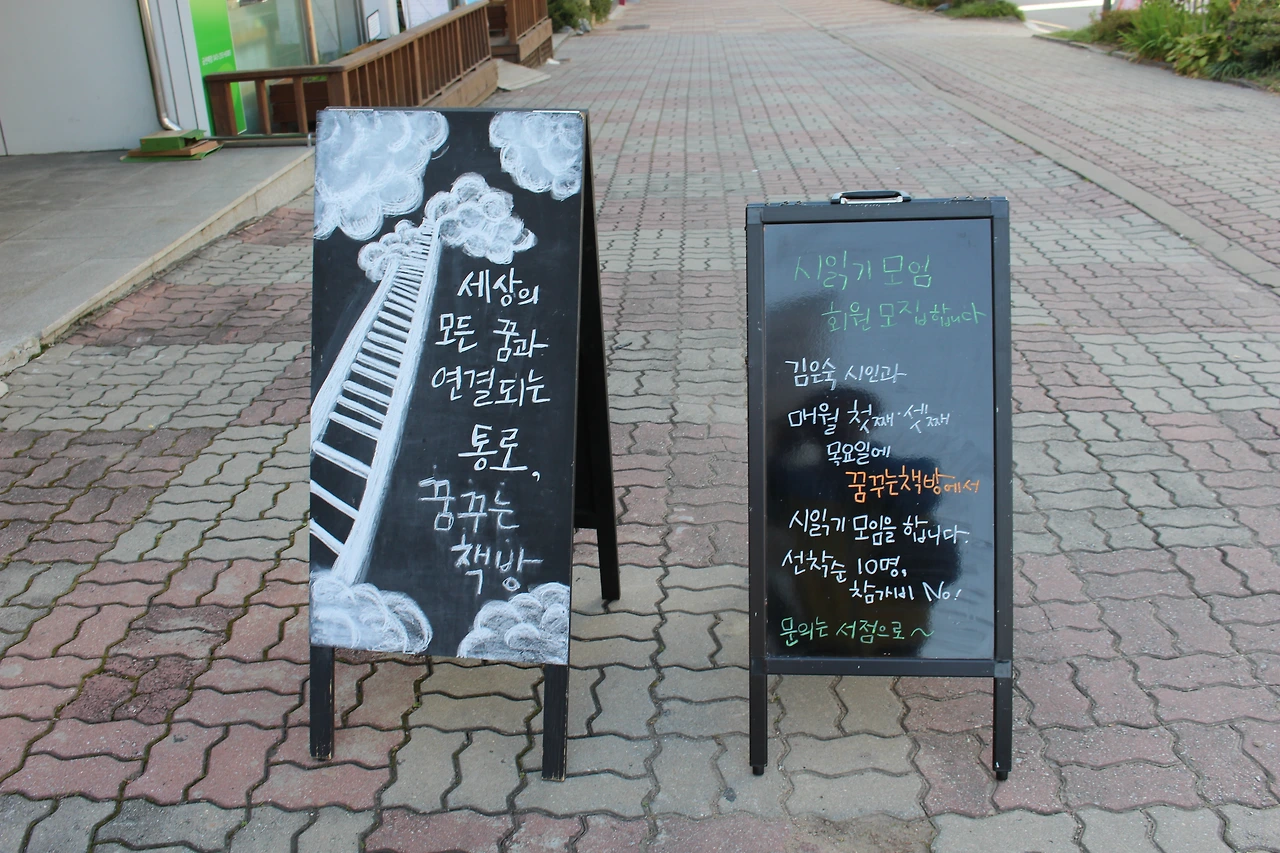 세상의
모든 꿈과
연결되는
통로,
꿈꾸는
책방
시읽기 모임
회원 모집합니다
김은숙 시인과
매월 첫째·셋째
목요일에
꿈꾸는책방에서
시읽기 모임을 합니다.
선착순 10명,
참가비 No!
문의는 서점으로~